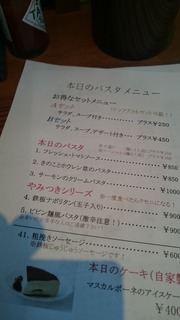 本日のパスタメニュー
お得なセットメニュー
Aセット
サラダ、スープ付き プラス¥250
Bセット
サラダ、スープ、デザート付き プラス¥450
本日のパスタ
1. フレッシュ・トマトソース ¥850
2. きのことホウレン草のパスタ ¥850
3. サーモンのクリームパスタ ¥1000
やみつきシリーズ
4. 鉄板ナポリタン(玉子入り) ¥900
5. ビビン麺風パスタ(激辛注意!)
41. 粗挽きソーセージ ¥600
本日のケーキ(自家製
マスカルポーネのアイスケー
¥400